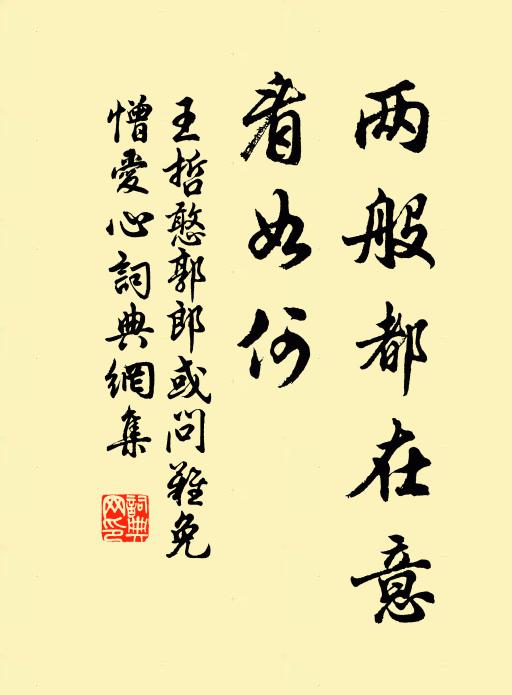 两般都在意
看如何
王哲憨郭郎或问难免
憎爱心词典网集
词典网印